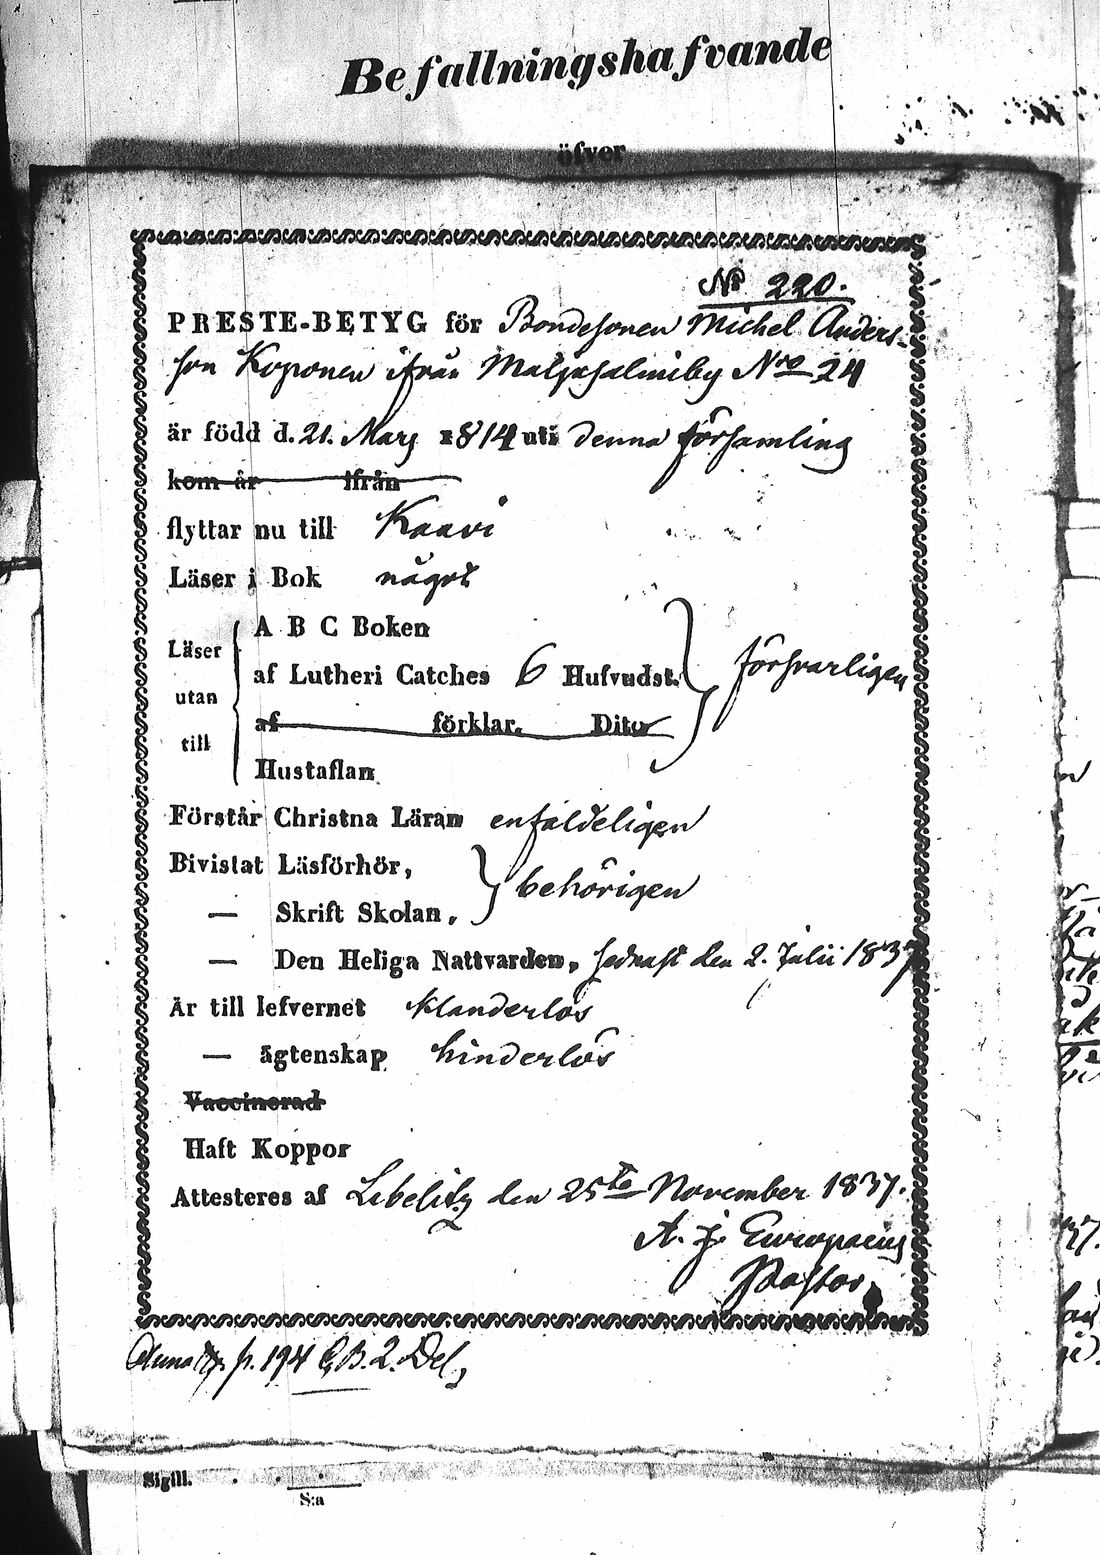 Befallningshafvande
öfver
No 220.
PRESTE-BETYG för Bondesonen Michel Anders-
son Koponen ifrån Maljasalmiby Nro 24
är född d. 21. Mars 1814 uti denna församling
kom år ifrån
flyttar nu till Kaavi
Läser i Bok något
A B C Boken
Läser
af Lutheri Catches 6 Hufvudst. försvarligen
utan
af förklar. Dito
till
Hustaflan
Förstår Christna Läran enfaldeligen
Bivistat Läsförhör,
behörigen
— Skrift Skolan,
— Den Heliga Nattvarden, sednast den 2. Julii 1837
Är till lefvernet klanderlös
— ägtenskap hinderlös
Vaccinerad
Haft Koppor
Attesteres af Libelitz den 25te November 1837.
A. J. Europaeus
Pastor.
p. 194 C.B. 2. Del,
Sigill.
S:a